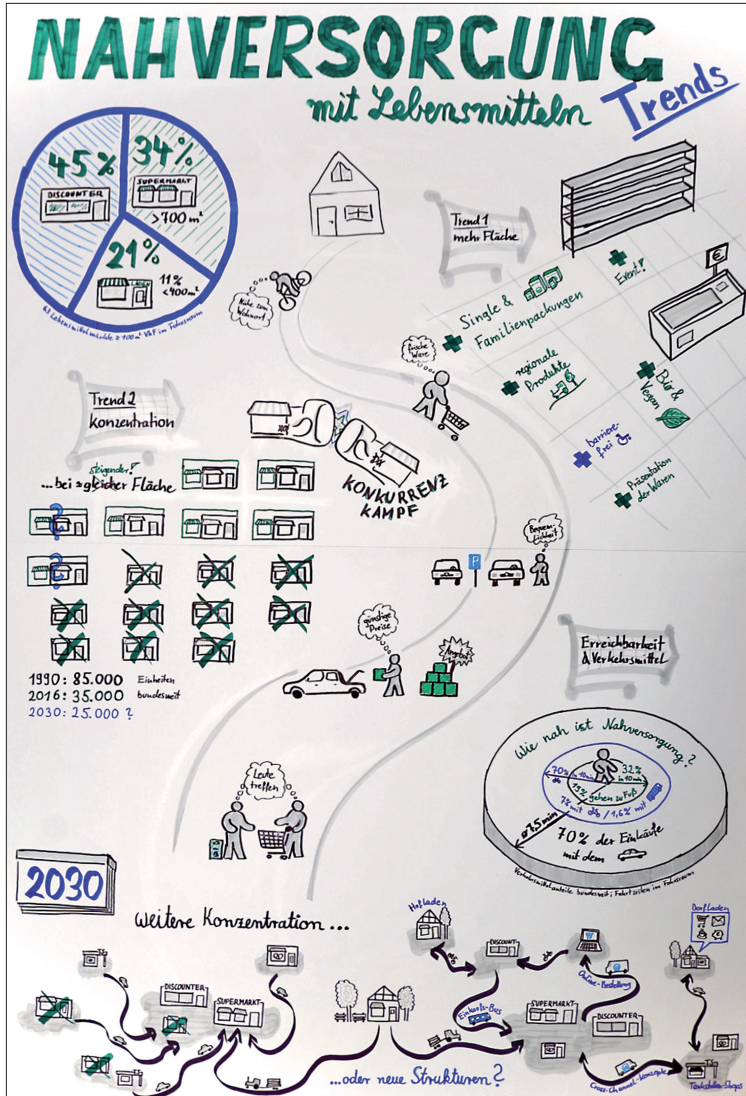 NAHVERSORGUNG
mit Lebensmitteln
Trends
45%
DISCOUNTER
34%
SUPERMARKT
>700 m²
21%
LADEN
11%
<400m²
63 Lebensmittelmärkte ≥ 100 m² VKF im Fokusraum
Nähe zum
Wohnort
Trend 1
mehr Fläche
€
Event!
Single &
Familienpackungen
regionale
Produkte
Bio &
Vegan
barriere-
frei
Präsentation
der Waren
frische
Ware
Trend 2
Konzentration
steigender!
...bei ≈gleicher Fläche
?
?
KONKURRENZ
KAMPF
Bequem-
lichkeit
P
günstige
Preise
Angebot
1990: 85.000 Einheiten
2016: 35.000 bundesweit
2030: 25.000 ?
Erreichbarkeit
& Verkehrsmittel
Wie nah ist Nahversorgung?
70% in 10min
32%
in 10min
19% gehen zu Fuß
7% mit / 1,6% mit
ø 7,5 min
70% der Einkäufe
mit dem
Verkehrsmittelanteile bundesweit; Fahrtzeiten im Fokusraum
Leute
treffen
2030
weitere Konzentration ...
DISCOUNTER
SUPERMARKT
...oder neue Strukturen?
Hofladen
DISCOUNT
Online-Bestellung
Einkaufs-Bus
SUPERMARKT
DISCOUNTER
Cross-Channel-Konzepte
Dorfladen
Tankstellen-Shops